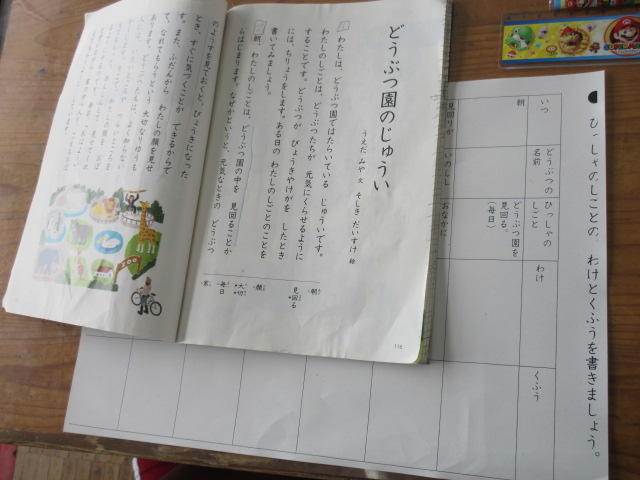 どうぶつ園のじゅうい
うえだ みや 文 そしき だいすけ 絵
わたしは、どうぶつ園ではたらいている じゅういです。
わたしのしごとは、どうぶつたちが 元気にくらせるように
することです。どうぶつが びょうきやけがを したとき
には、ちりょうをします。ある日の わたしのしごとのことを
書いてみましょう。
朝、わたしのしごとは、どうぶつ園の中を 見回ることか
らはじまります。なぜかというと、元気なときの どうぶつ
朝
見回る
顔
大切
毎日
116
のようすを見ておくと、びょうきになった
とき、すぐに気づくことが できるからで
す。また、ふだんから わたしの顔を見せ
て、なれてもらうという 大切なりゆうも
あります。
ひっしゃのしごとの わけとくふうを書きましょう。
いつ
どうぶつの名前
ひっしゃのしごと
わけ
くふう
朝
どうぶつ園を
見回る。
(毎日)
見回りが
いのしし
おなかに